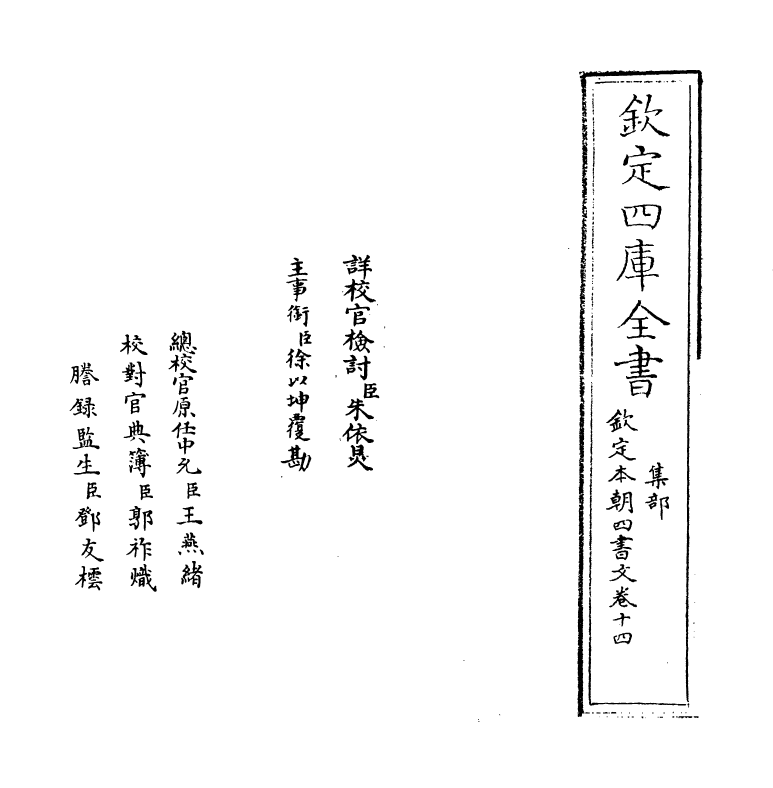 欽定四庫全書
集部
欽定本朝四書文卷十四
詳校官檢討臣朱依炅
主事銜臣徐以坤覆勘
總校官原任中允臣王燕緒
校對官典簿臣郭祚熾
謄錄監生臣鄧友橒